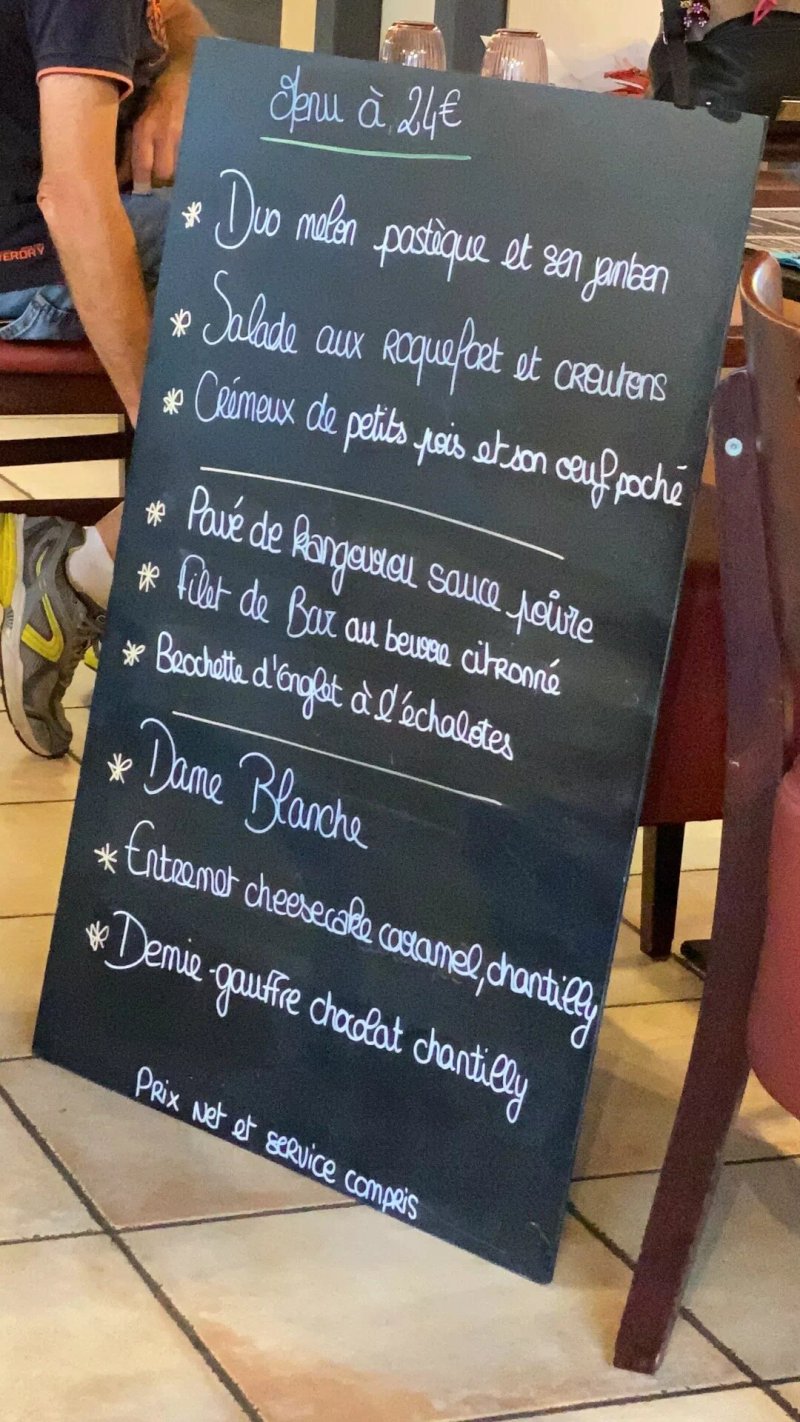 Menu à 24€
* Duo melon pastèque et son jambon
* Salade aux roquefort et croutons
* Crémeux de petits pois et son œuf poché
* Pavé de kangourou sauce poivre
* Filet de Bar au beurre citronné
* Brochette d'Onglet à l'échalotes
* Dame Blanche
* Entremet cheesecake caramel, chantilly
* Demie-gauffre chocolat chantilly
Prix net et service compris